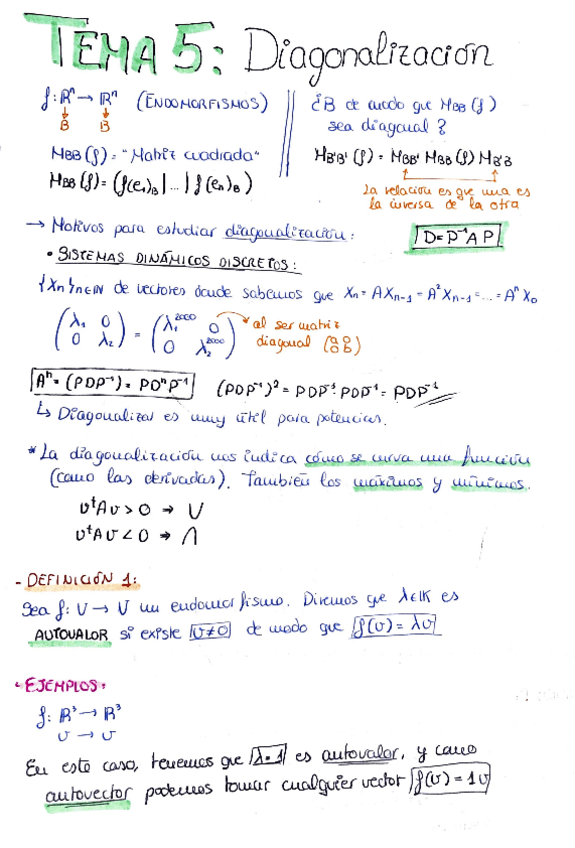 TEMA 5: Diagonalización
f: ℝⁿ → ℝⁿ (ENDOMORFISMOS)
B B
M_BB (f) = "Matriz cuadrada"
M_BB (f) = (f(e₁)_B | ... | f(en)_B)
¿B de modo que M_BB (f)
sea diagonal?
M_B'B' (f) = M_BB' M_BB (f) M_B'B
La relación es que una es
la inversa de la otra
→ Motivos para estudiar diagonalización:
D = P⁻¹AP
• SISTEMAS DINÁMICOS DISCRETOS:
{Xn}n∈ℕ de vectores donde sabemos que Xn = AXn-1 = A²Xn-1 = ... = AⁿX₀
(λ₁ 0 / 0 λ₂) = (λ₁²⁰⁰⁰ 0 / 0 λ₂²⁰⁰⁰)
al ser matriz
diagonal
Aⁿ = (PDP⁻¹) = PDⁿP⁻¹ (PDP⁻¹)² = PDP⁻¹ PDP⁻¹ = PDP⁻¹
↳ Diagonalizar es muy útil para potencias.
* La diagonalización nos indica cómo se curva una función
(como las derivadas). También los máximos y mínimos.
vᵗAv > 0 → ∪
vᵗAv < 0 → ∩
- DEFINICIÓN 1:
Sea f: V → V un endomorfismo. Diremos que λ∈𝕂 es
AUTOVALOR si existe v≠0 de modo que f(v) = λv
• EJEMPLOS:
f: ℝ³ → ℝ³
v → v
En este caso, tenemos que λ=1 es autovalor, y como
autovector podemos tomar cualquier vector f(v) = 1v